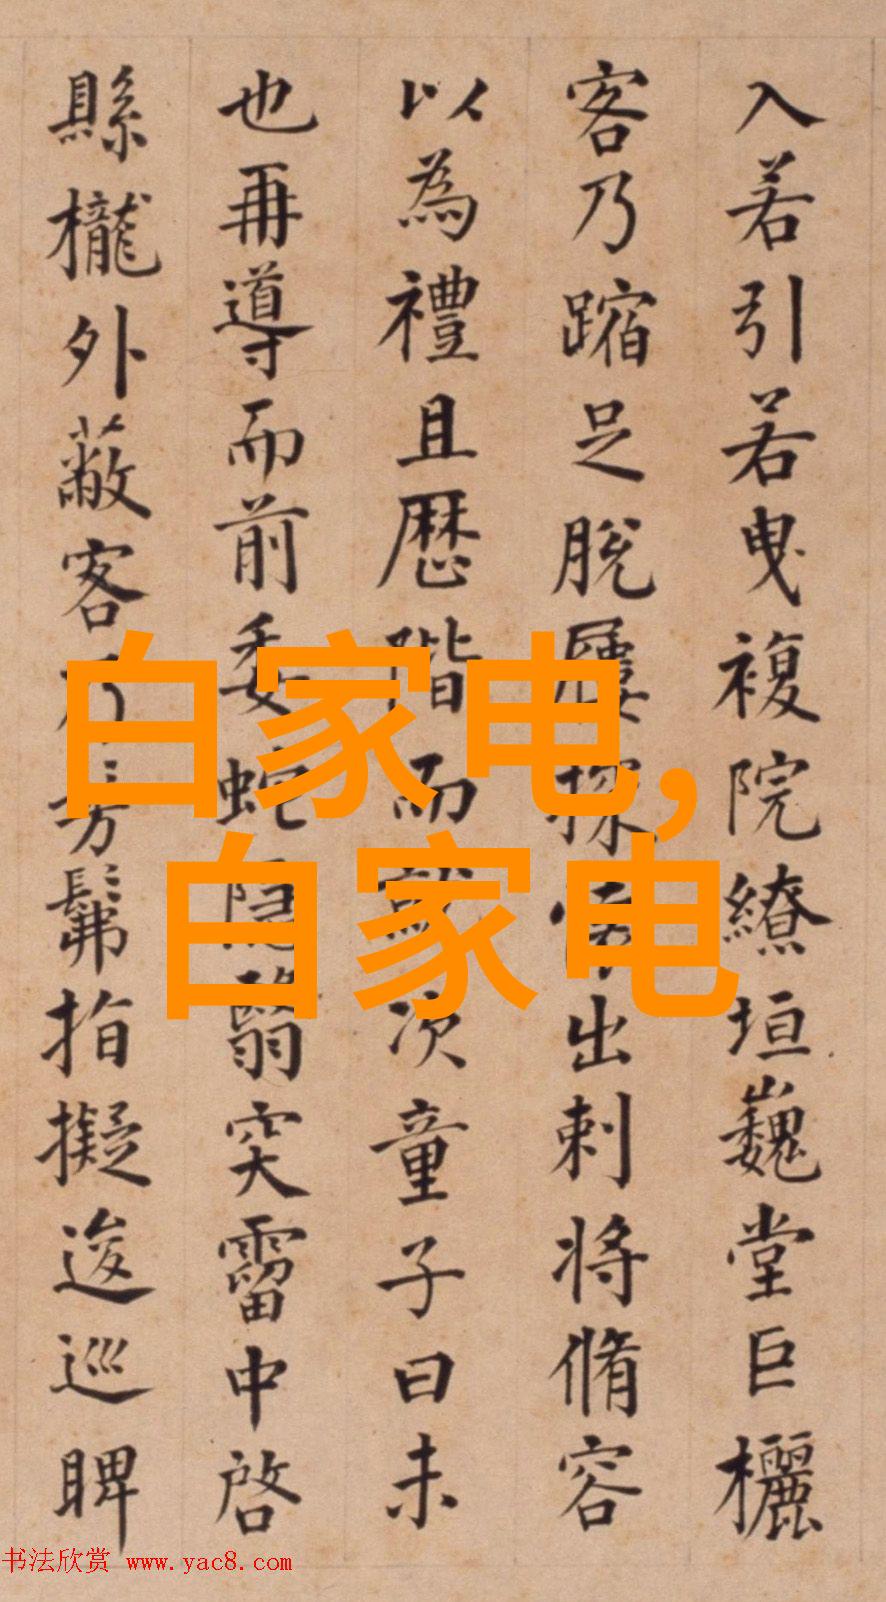 入若引若曳複院繚垣巍堂巨欐
客乃蹜足脫屨探懷出刺将脩容
以為禮且歷階而就次童子曰未
也再導而前委蛇隱翳突霤中啓
縣櫳外蔽客乃髣髴指擬逡巡睥
白家电,
白家电
书法欣赏 www.yac8.com